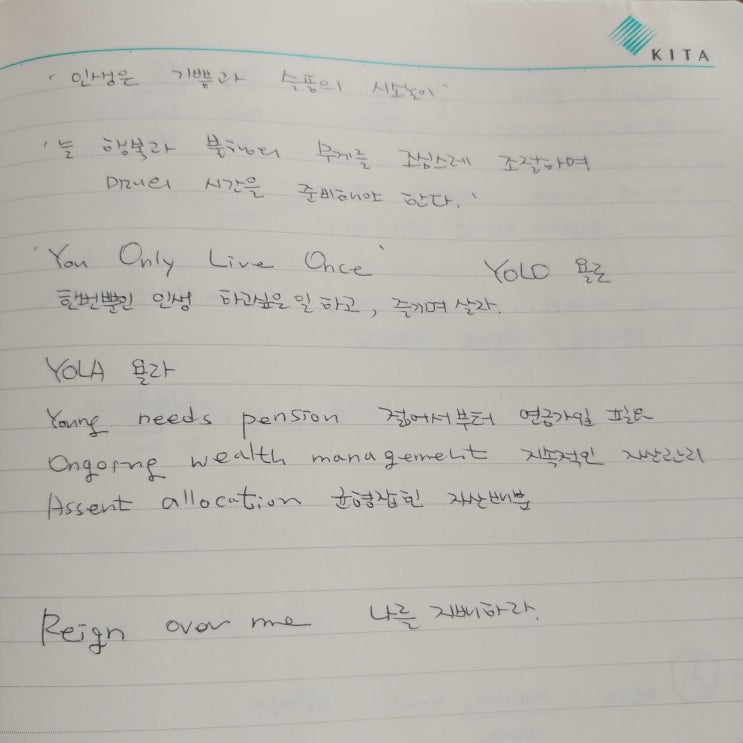 KITA
' 인생은 기쁨과 슬픔의 시소놀이 '
' 늘 행복과 불행의 무게를 조심스레 조절하며
미래의 시간을 준비해야 한다. '
' You Only Live Once ' YOLO 욜로
한번뿐인 인생 하고싶은 일 하고, 즐기며 살자.
YOLA 욜라
Young needs pension 젊어서부터 연금가입 필요
Ongoing wealth management 지속적인 자산관리
Assent allocation 균형잡힌 자산배분
Reign over me 나를 지배하라.